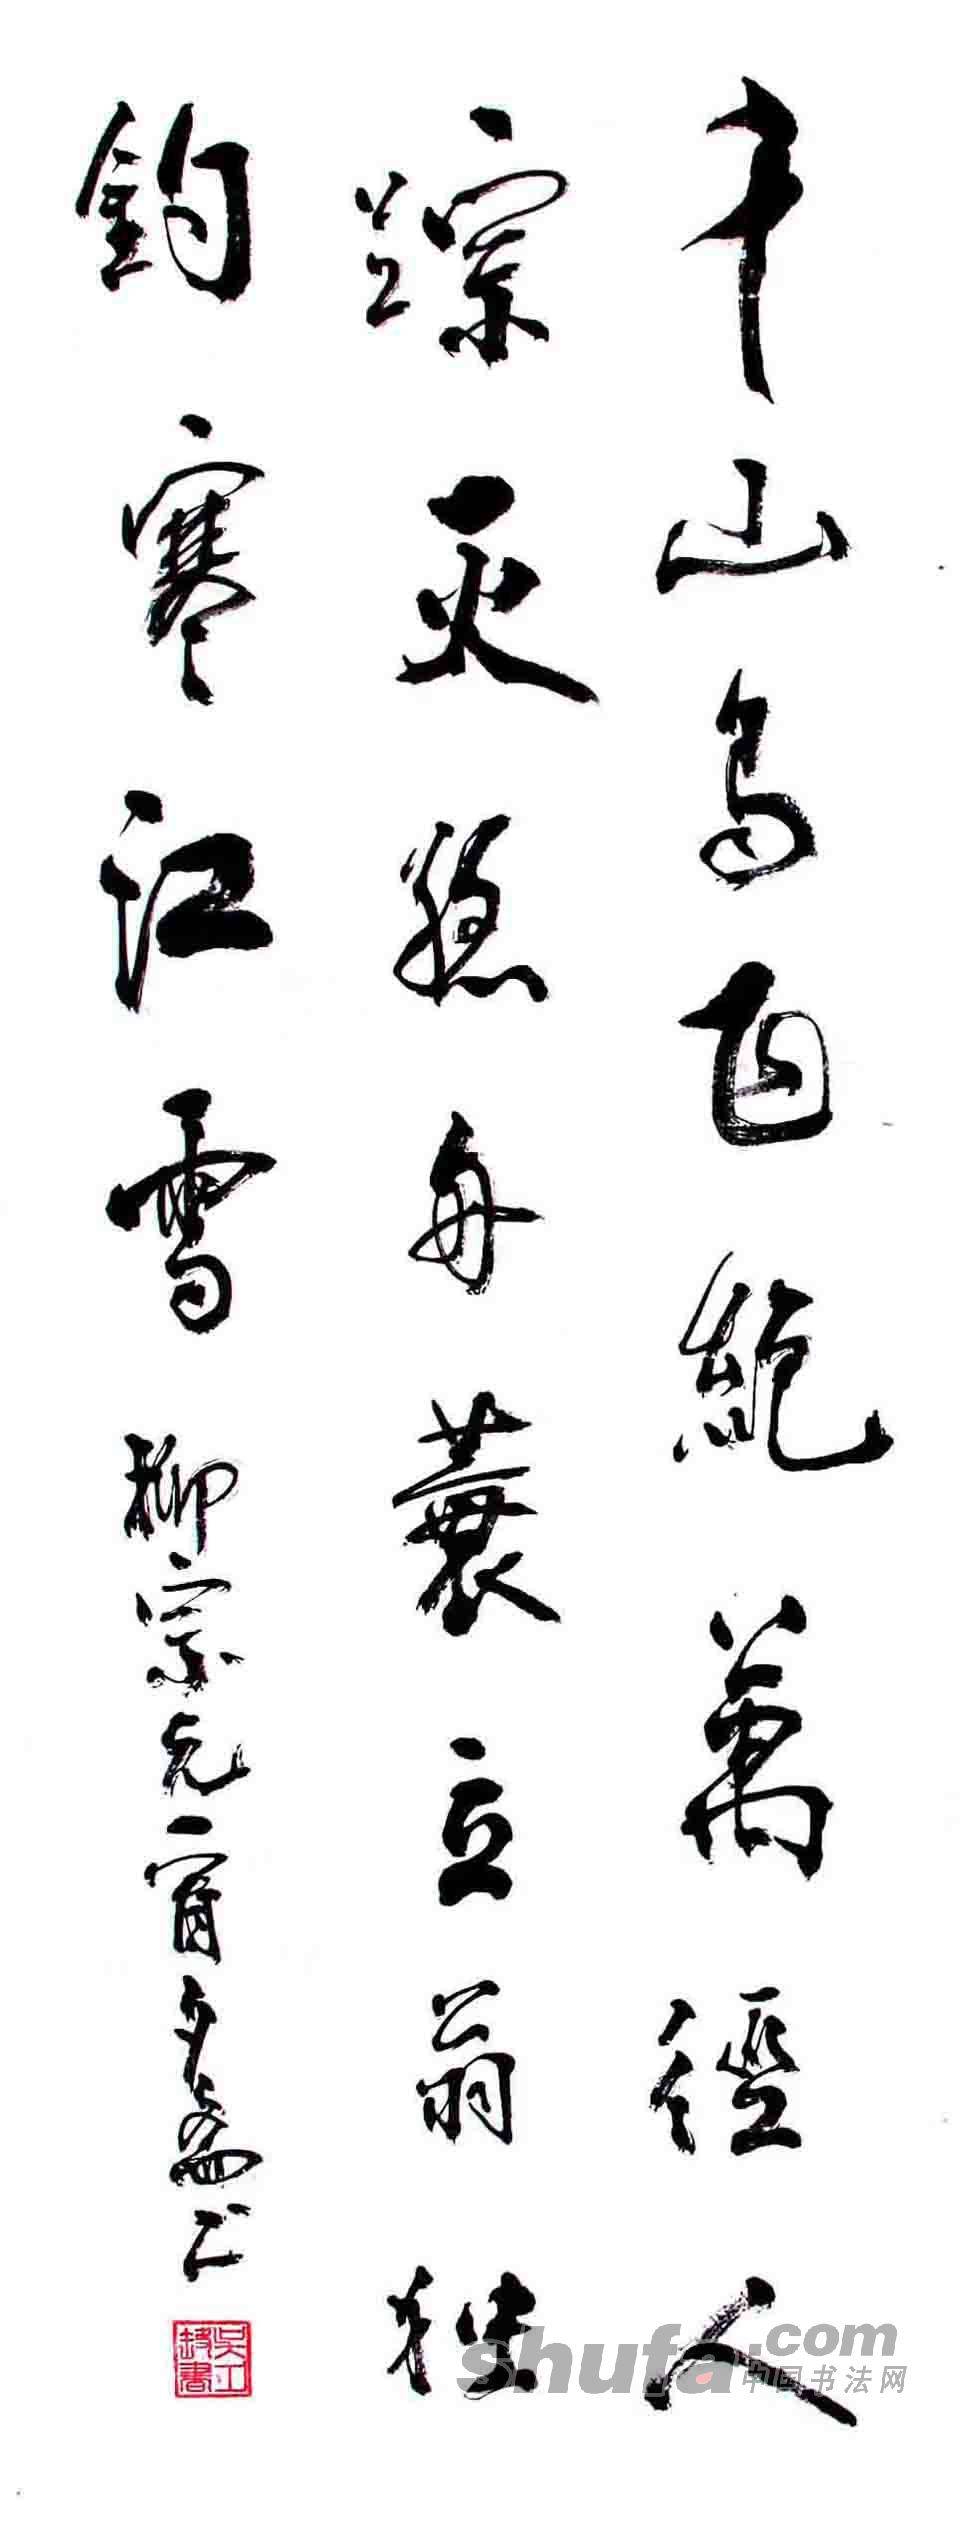 千山鸟飞絕萬徑人
踪灭孤舟蓑立翁独
钓寒江雪 柳宗元
shufa.com
中国书法网